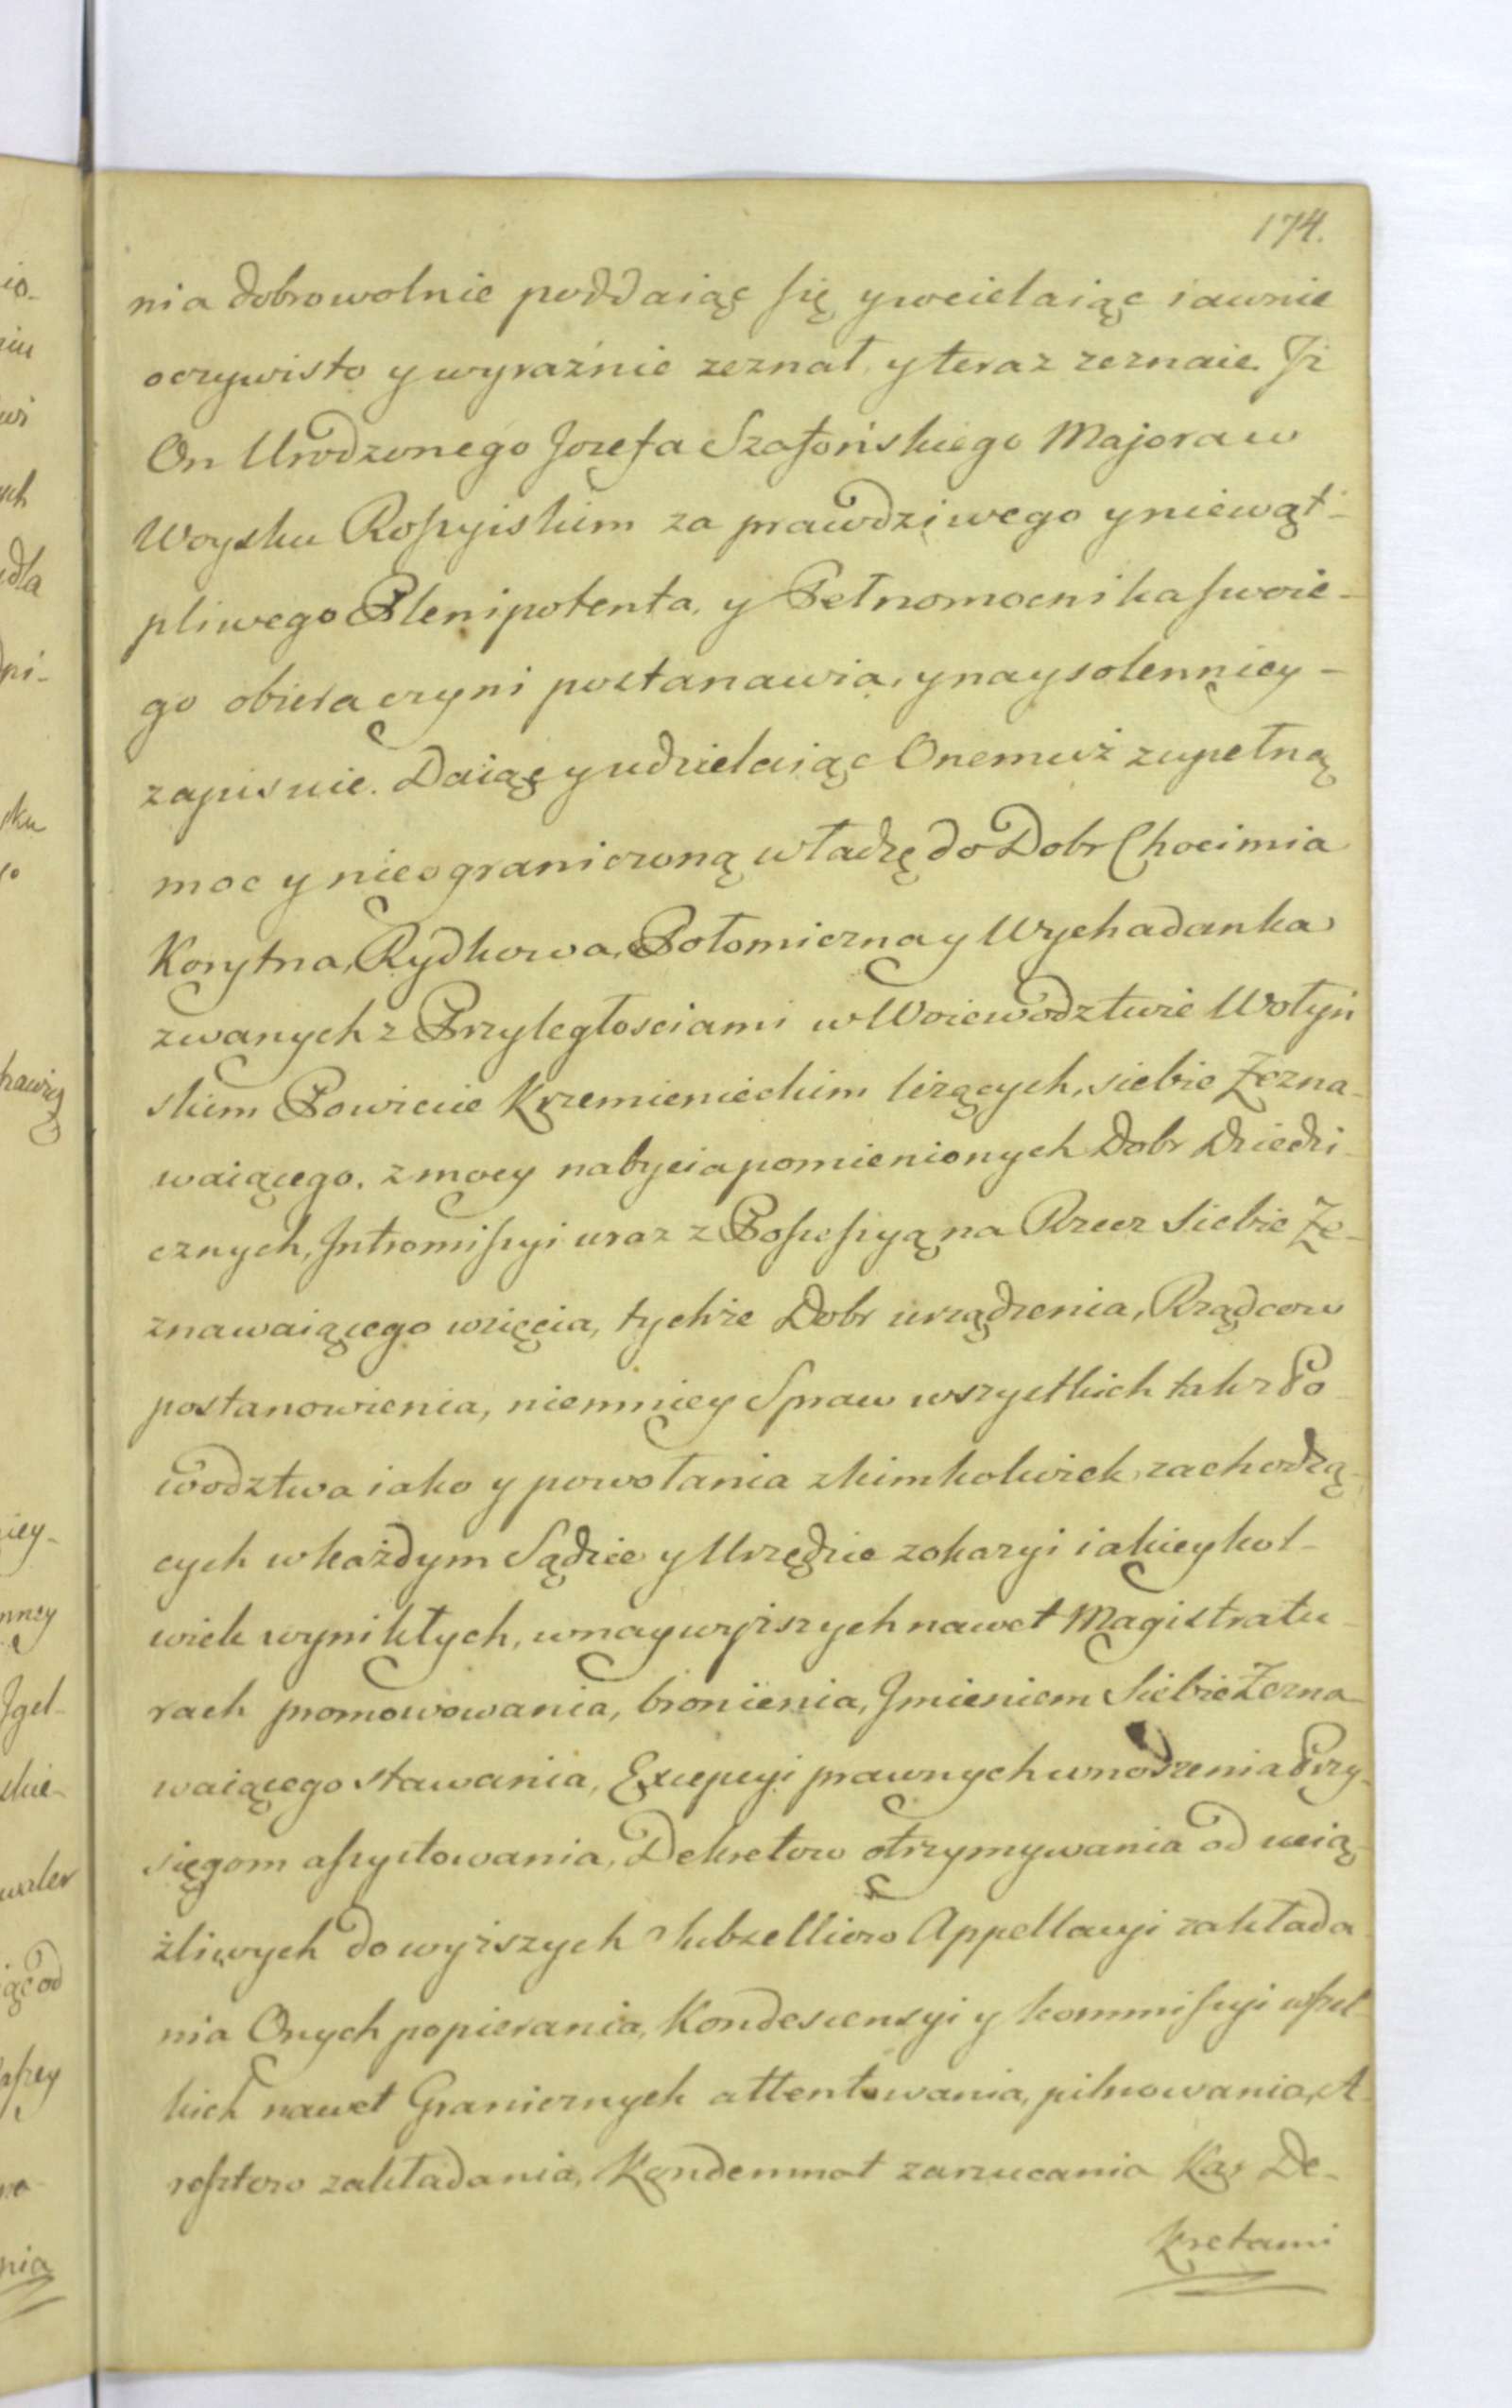 174.
nia dobrowolnie poddaiąc się y wcielaiąc iawnie
oczywisto y wyraźnie zeznał, y teraz zeznaie. Iż
On Urodzonego Jozefa Szafońskiego Majora w
Woysku Rossyiskim za prawdziwego y niewąt-
pliwego Plenipotenta, y Pełnomocnika swoie-
go obiera czyni postanawia, y naysolenniey-
zapisuie. Daiąc y udzielaiąc Onemuż zupełną
moc y nieograniczoną władzę do Dobr Chocimia
Korytna, Rydkowa, Połomiczna y Wychadanka
zwanych z Przyległosciami w Woiewodztwie Wołyń
skim Powiecie Krzemienieckim leżących, siebie Zezna-
waiącego, z mocy nabycia pomienionych Dobr Dziedzi-
cznych, Intromissyi wraz z Possessyą na Rzecz Siebie Ze-
znawaiącego wzięcia, tychże Dobr urządzenia, Rządcow
postanowienia, niemniey Spraw wszystkich tak z Po
wodztwa iako y powołania z kimkolwiek zachodzą-
cych w każdym Sądzie y Urzędzie z okazyi iakieykol-
wiek wynikłych, w naywyższych nawet Magistratu-
rach promowowania, bronienia, Imieniem Siebie Zezna-
waiącego stawania, Excepcyi prawnych wnoszenia Przy-
sięgom assystowania, Dekretow otrzymywania od ucią-
żliwych do wyższych Subzelliow Appellacyi zakłada
nia Onych popierania, Kondescensyi y kommissyi wszel
kich nawet Granicznych attentowania, pilnowania, A-
resztow zakładania, Kondemnat zarzucania Kar De-
kretami
io-
niu
wi
ych
dla
pi-
sku
go
prawię
iey-
nney
Jgel-
skie-
waler
iąc od
aszey
no-
nia